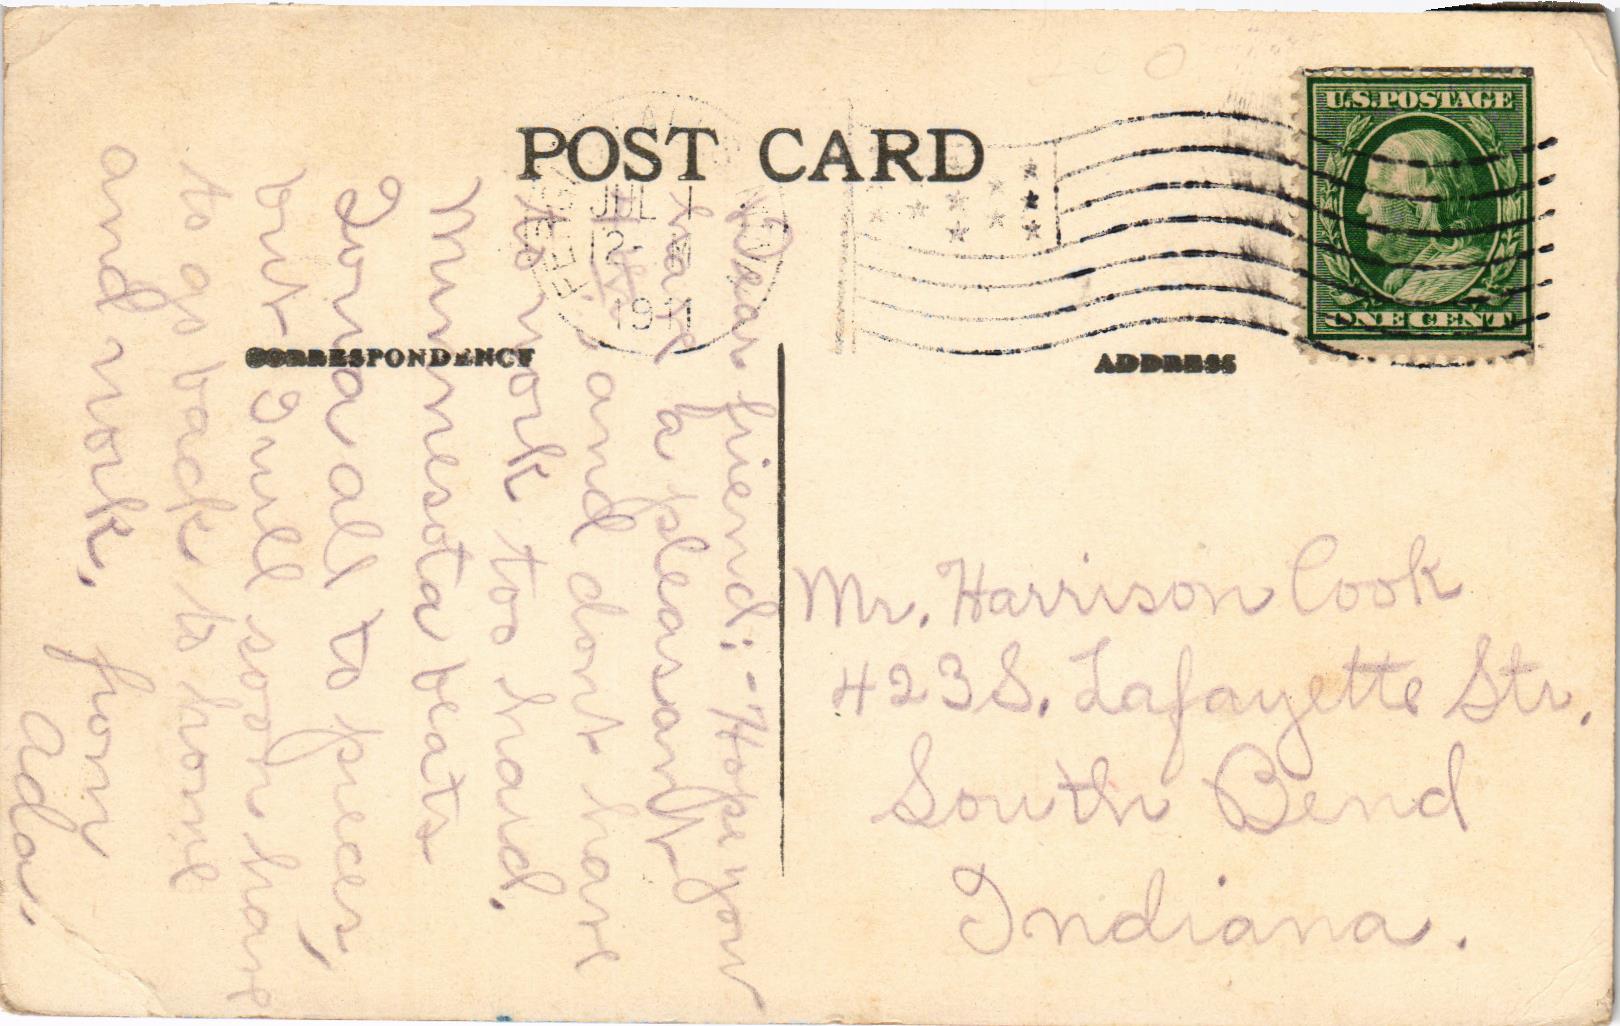 POST CARD
JUL 1
12- M
1911
U.S. POSTAGE
ONE CENT
CORRESPONDENCE
ADDRESS
Dear friend:- Hope you
have a pleasant
4th. and dont have
to work too hard.
Minnesota beats
Iowa all to pieces,
but I will soon have
to go back to home
and work, from
Ada.
Mr. Harrison Cook
423 S. Lafayette Str.
South Bend
Indiana.
200